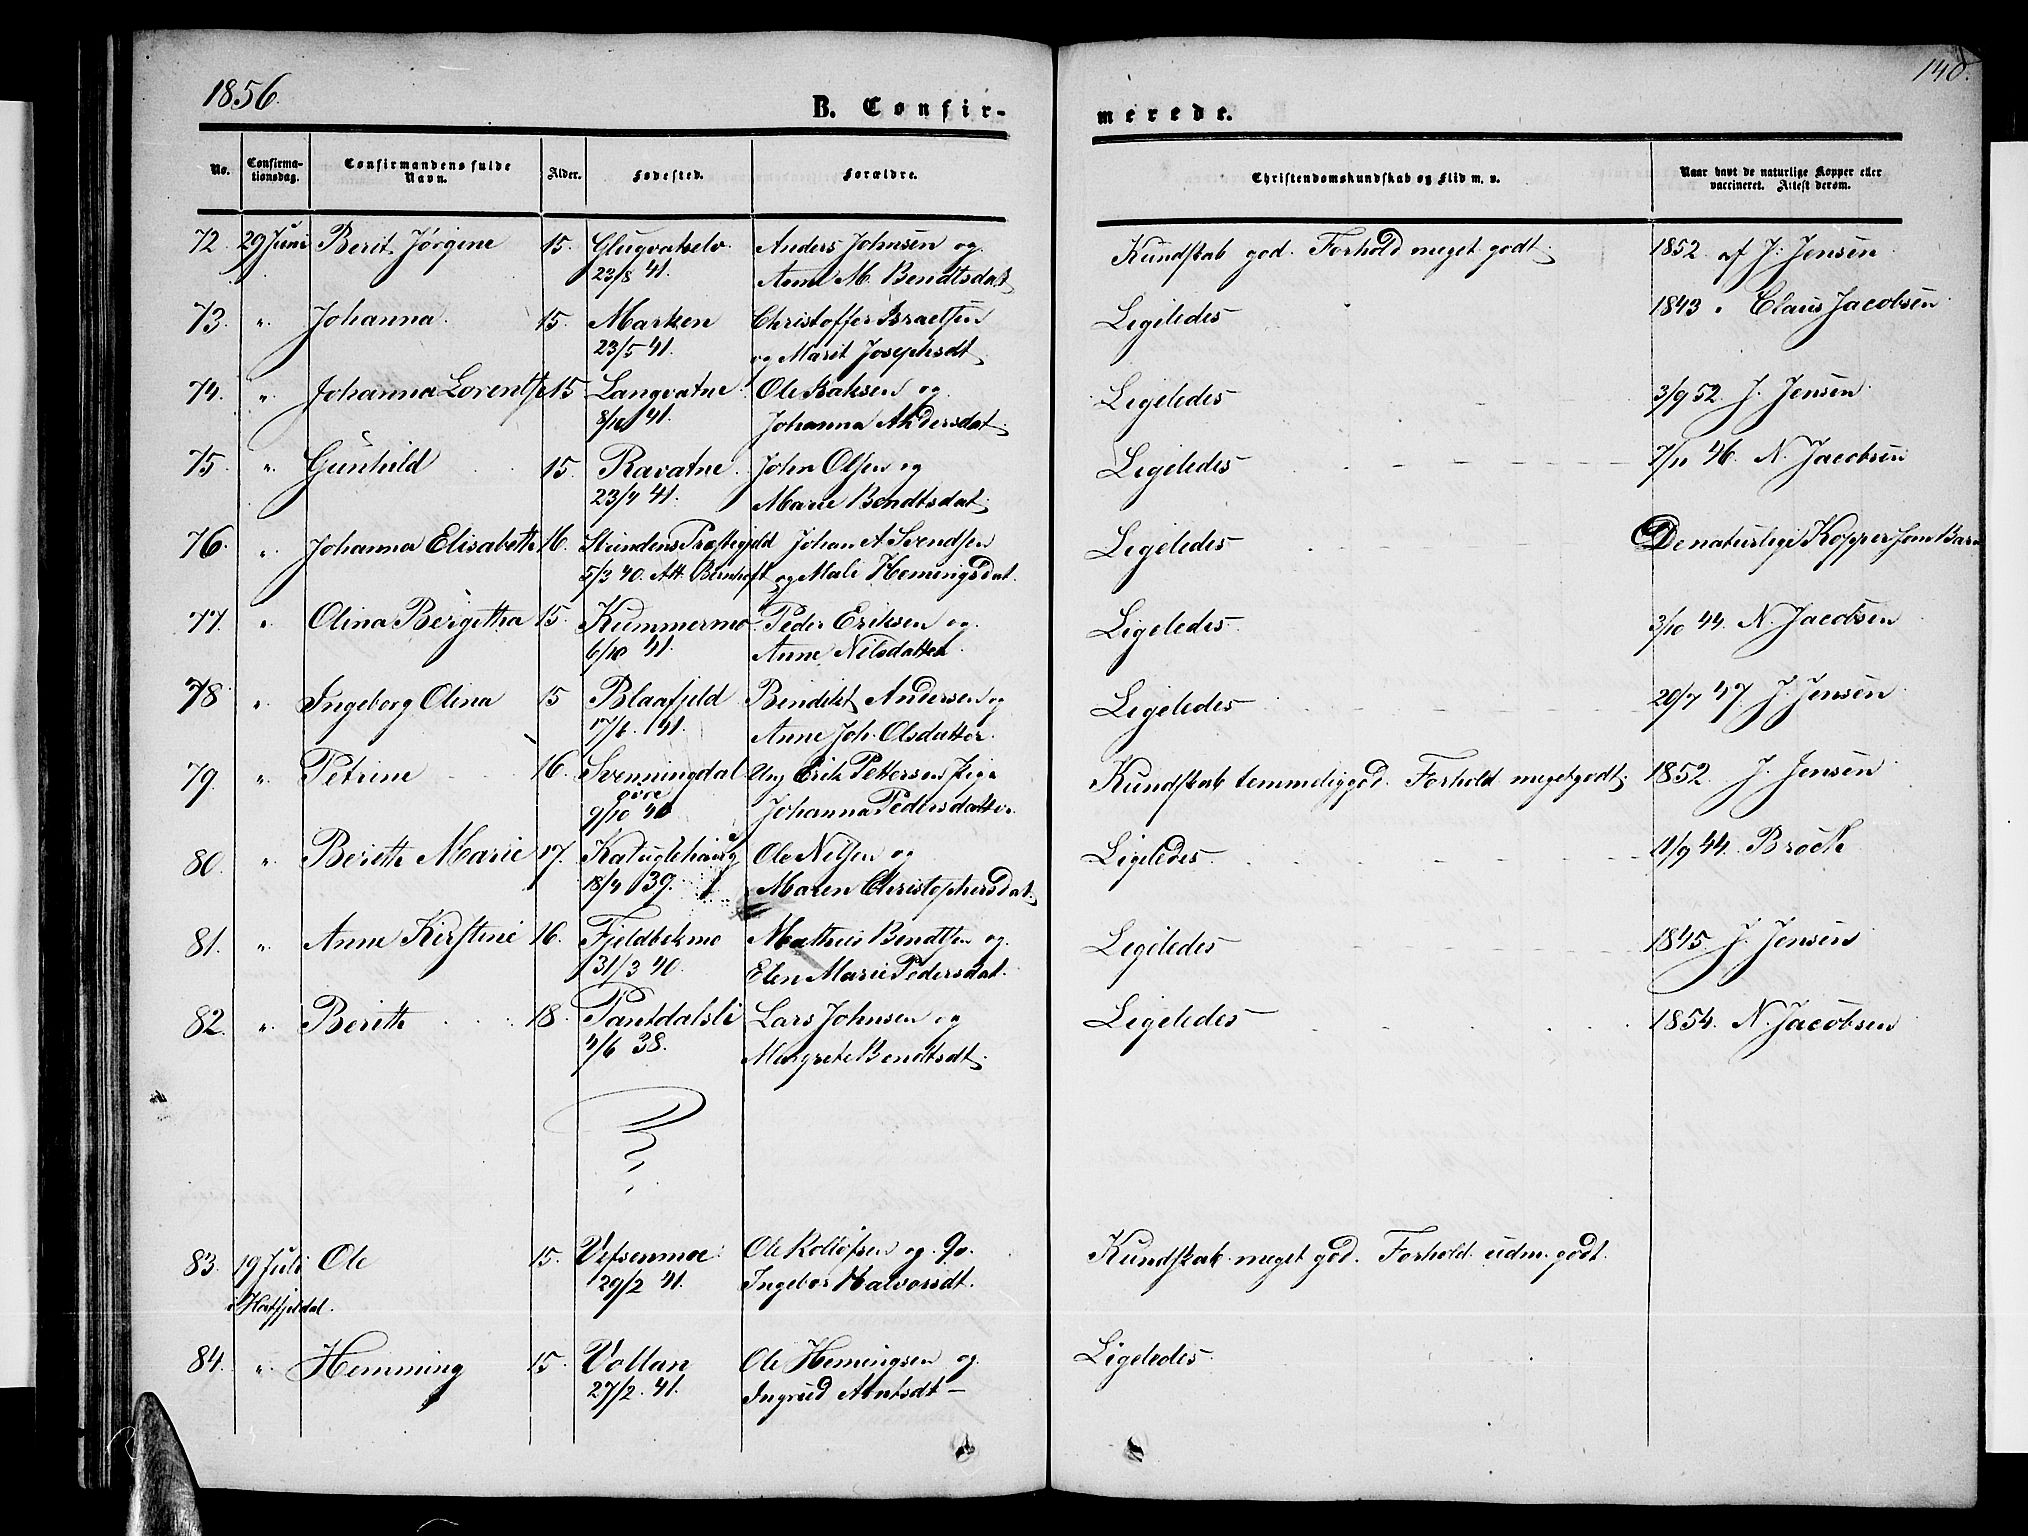 1856.
140.
B. Confir-
merede.
No. Confirma-tionsdag. Confirmandens fulde Navn. Alder. Fødested. Forældre. Christendomskundskab og Flid m. v. Naar havt de naturlige Kopper eller vaccineret. Attest derom.
72. 29 Juni Berit Jørgine 15. Glugvatselv Anders Johnsen og Kundskab god. Forhold meget godt. 1852. af J. Jensen
23/8 41. Anne M. Bendtsdat
73. " Johanna 15. Marken Christoffer Israelsen Ligeledes 1843 " Claus Jacobsen
23/5 41. og Marit Josephsdt
74. " Johanna Lorentse 15 Langvatne Ole Isaksen og Ligeledes 3/9 52. J. Jensen
8/10 41. Johanna Andersdat.
75. " Gunhild 15 Ravatne John Olsen og Ligeledes 7/11 46. N. Jacobsen
23/4 41. Marie Bendtsdat.
76. " Johanna Elisabeth 16. Præstegjeld Johan A Svendsen Ligeledes De naturlige Kopper som Barn
5/3 40. Att. Bernhoft og Mali Hemingsdat.
77. " Olina Bergitha 15. Kummermo Peder Eriksen og Ligeledes 3/10 44. N. Jacobsen
6/10 41. Anne Nilsdatter
78 " Ingeborg Olina 15 Blaafjeld Bendikt Andersen og Ligeledes 20/7 47. J. Jensen
17/6. 41. Anne Joh. Olsdatter.
79. " Petrine 16. Svenningdal Ung Erik Pettersen, Pige Kundskab temmelig god. Forhold meget godt. 1852. J. Jensen
øvre
9/10 40 Johanna Pedersdatter
80. " Berith Marie 17. Katuglehaug Ole Nilsen og Ligeledes 11/9 44. Broch
18/4 39. Maren Christophersdat.
81. " Anne Kirstine 16. Fjeldbekmo Mathis Bendtsen og Ligeledes 1845. J. Jensen
31/3 40. Elen Marie Pedersdat.
82. " Berith 18. Pantdalsli Lars Johnsen og Ligeledes 1854. N. Jacobsen
4/6 38. Margrete Bendtsdt.
83. 19 Juli Ole 15. Vefsenmoe Ole Rolløfsen og Kundskab meget god. Forhold udm. godt.
i Hatfjeldal. 29/2 41. Ingebor Halvorsdt.
84. " Hemming 15. Vollan Ole Hemingsen og Ligeledes
27/2. 41. Ingrid Arntsdt